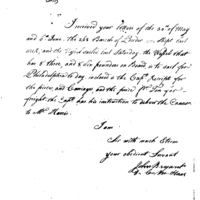 Sir
I received your letters of the 24th of May
and 5th June the 268 Barrels of Powder Shipt last
week, and the Vessel sailed last Saturday. the Vessel that
has 8 three, and 8 six pounders on Board is to sail for
Philadelphia to day, inclosed is the Capts. Receipt for
the piece, and Carriages, and the price Pr. Ton for
freight. the Capt. has his instruction to deliver the Cannon
to Mr.
I am
Sir with much Esteem
your obedient Servant
John Bryant